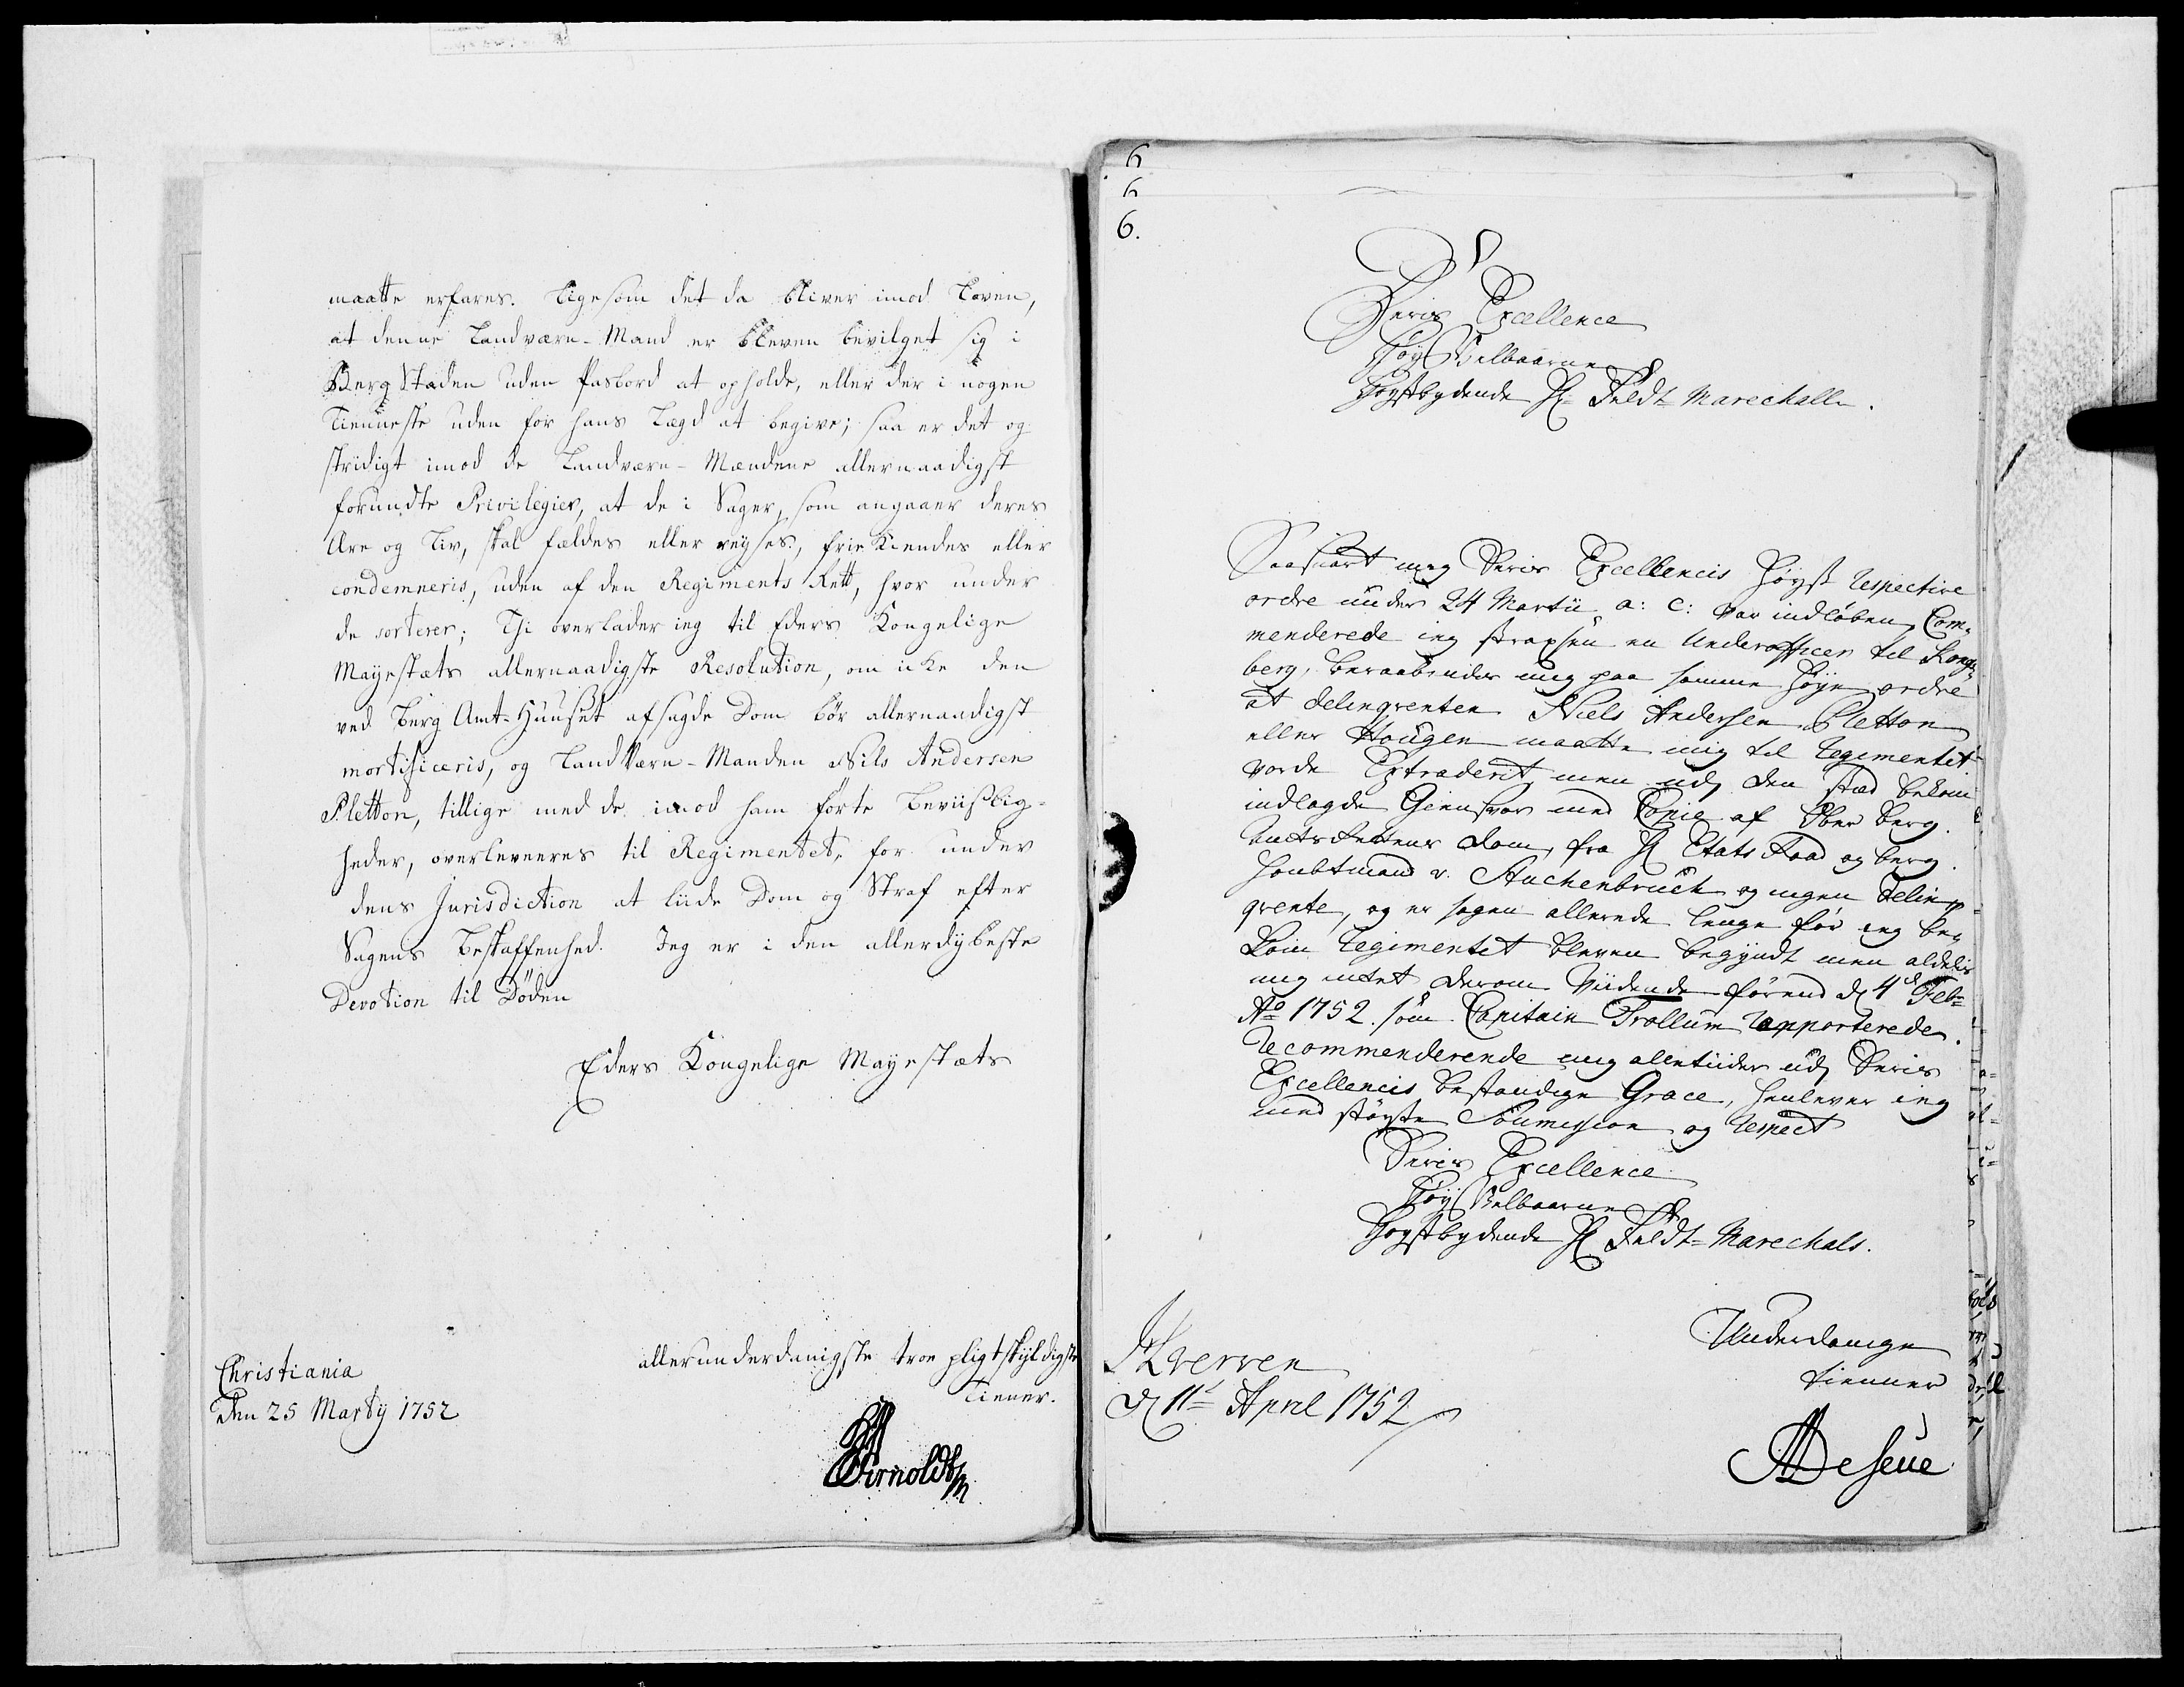 maatte erfares. Ligesom det da bliver imod Loven,
at denne Landværn-Mand er bleven bevilget sig i
Berg Staden uden Pasbord at opholde, eller der i nogen
Tienneste uden for hans Lægd at begive; saa er det og
stridigt imod de Landværn-Mændene allernaadigst
forundte Privilegier, at de i Sager, som angaaer deres
Ære og Liv, skal fældes eller reyses, frie kiendes eller
condemneris, uden af den Regiments Rett, hvor under
de sorterer; Thi overlader ieg til Eders Kongelige
Mayestæts allernaadigste Resolution, om icke den
ved Berg Amt-Huuset afsagde Dom bör allernaadigst
mortificeris, og LandVærn-Manden Nils Andersen
Pletton, tillige med de imod ham förte Beviislig-
heder, overleveeres til Regimentet, for under
dens Jurisdiction at liide Dom og Straf efter
Sagens Beskaffenhed. Jeg er i den allerdybeste
Devotion til Döden
Eders Kongelige Mayestæts
allerunderdanigste troe pligtskyldigste
Tiener.
Christiania
den 25 Marty 1752
Arnoldt
6
6
6.
Deris Excellence
Höy Velbaarne
Höystbydende H: Feldt-Marechall.
Saasnart mig Deris Excellencis Höyst respective
ordre under 24 Martii a: c: var indlöben, Com-
menderede ieg strax en Underofficer til Kongs-
berg, beraabendes mig paa samme höye ordre
at delinqventen Niels Andersen Pletton
eller Haugen maatte mig til Regimentet
vorde Extraderit men udj den stæd bekom
indlagde Giensvar med Copie af Ober Berg.
Amts Rettens dom, fra H: Etats Raad og berg.
Houbtmand v. Stuckenbruck og ingen delin-
qvente, og er sagen allerede lenge för ieg be-
kom Regimentet bleven begyndt men aldelis
mig intet derom Viidende förend d: 4de Feb:
Ao 1752. som Capitain Trollum rapporterede.
Recommenderende mig alletiider udj Deris
Excellencis bestandige Grace, henlever ieg
med störste Soumission og respect
Deris Excellence
Höy Velbaarne
Höystbydende H: Feldt-Marechals.
Underdanige
tienner
d: 11te April 1752
ADeseue